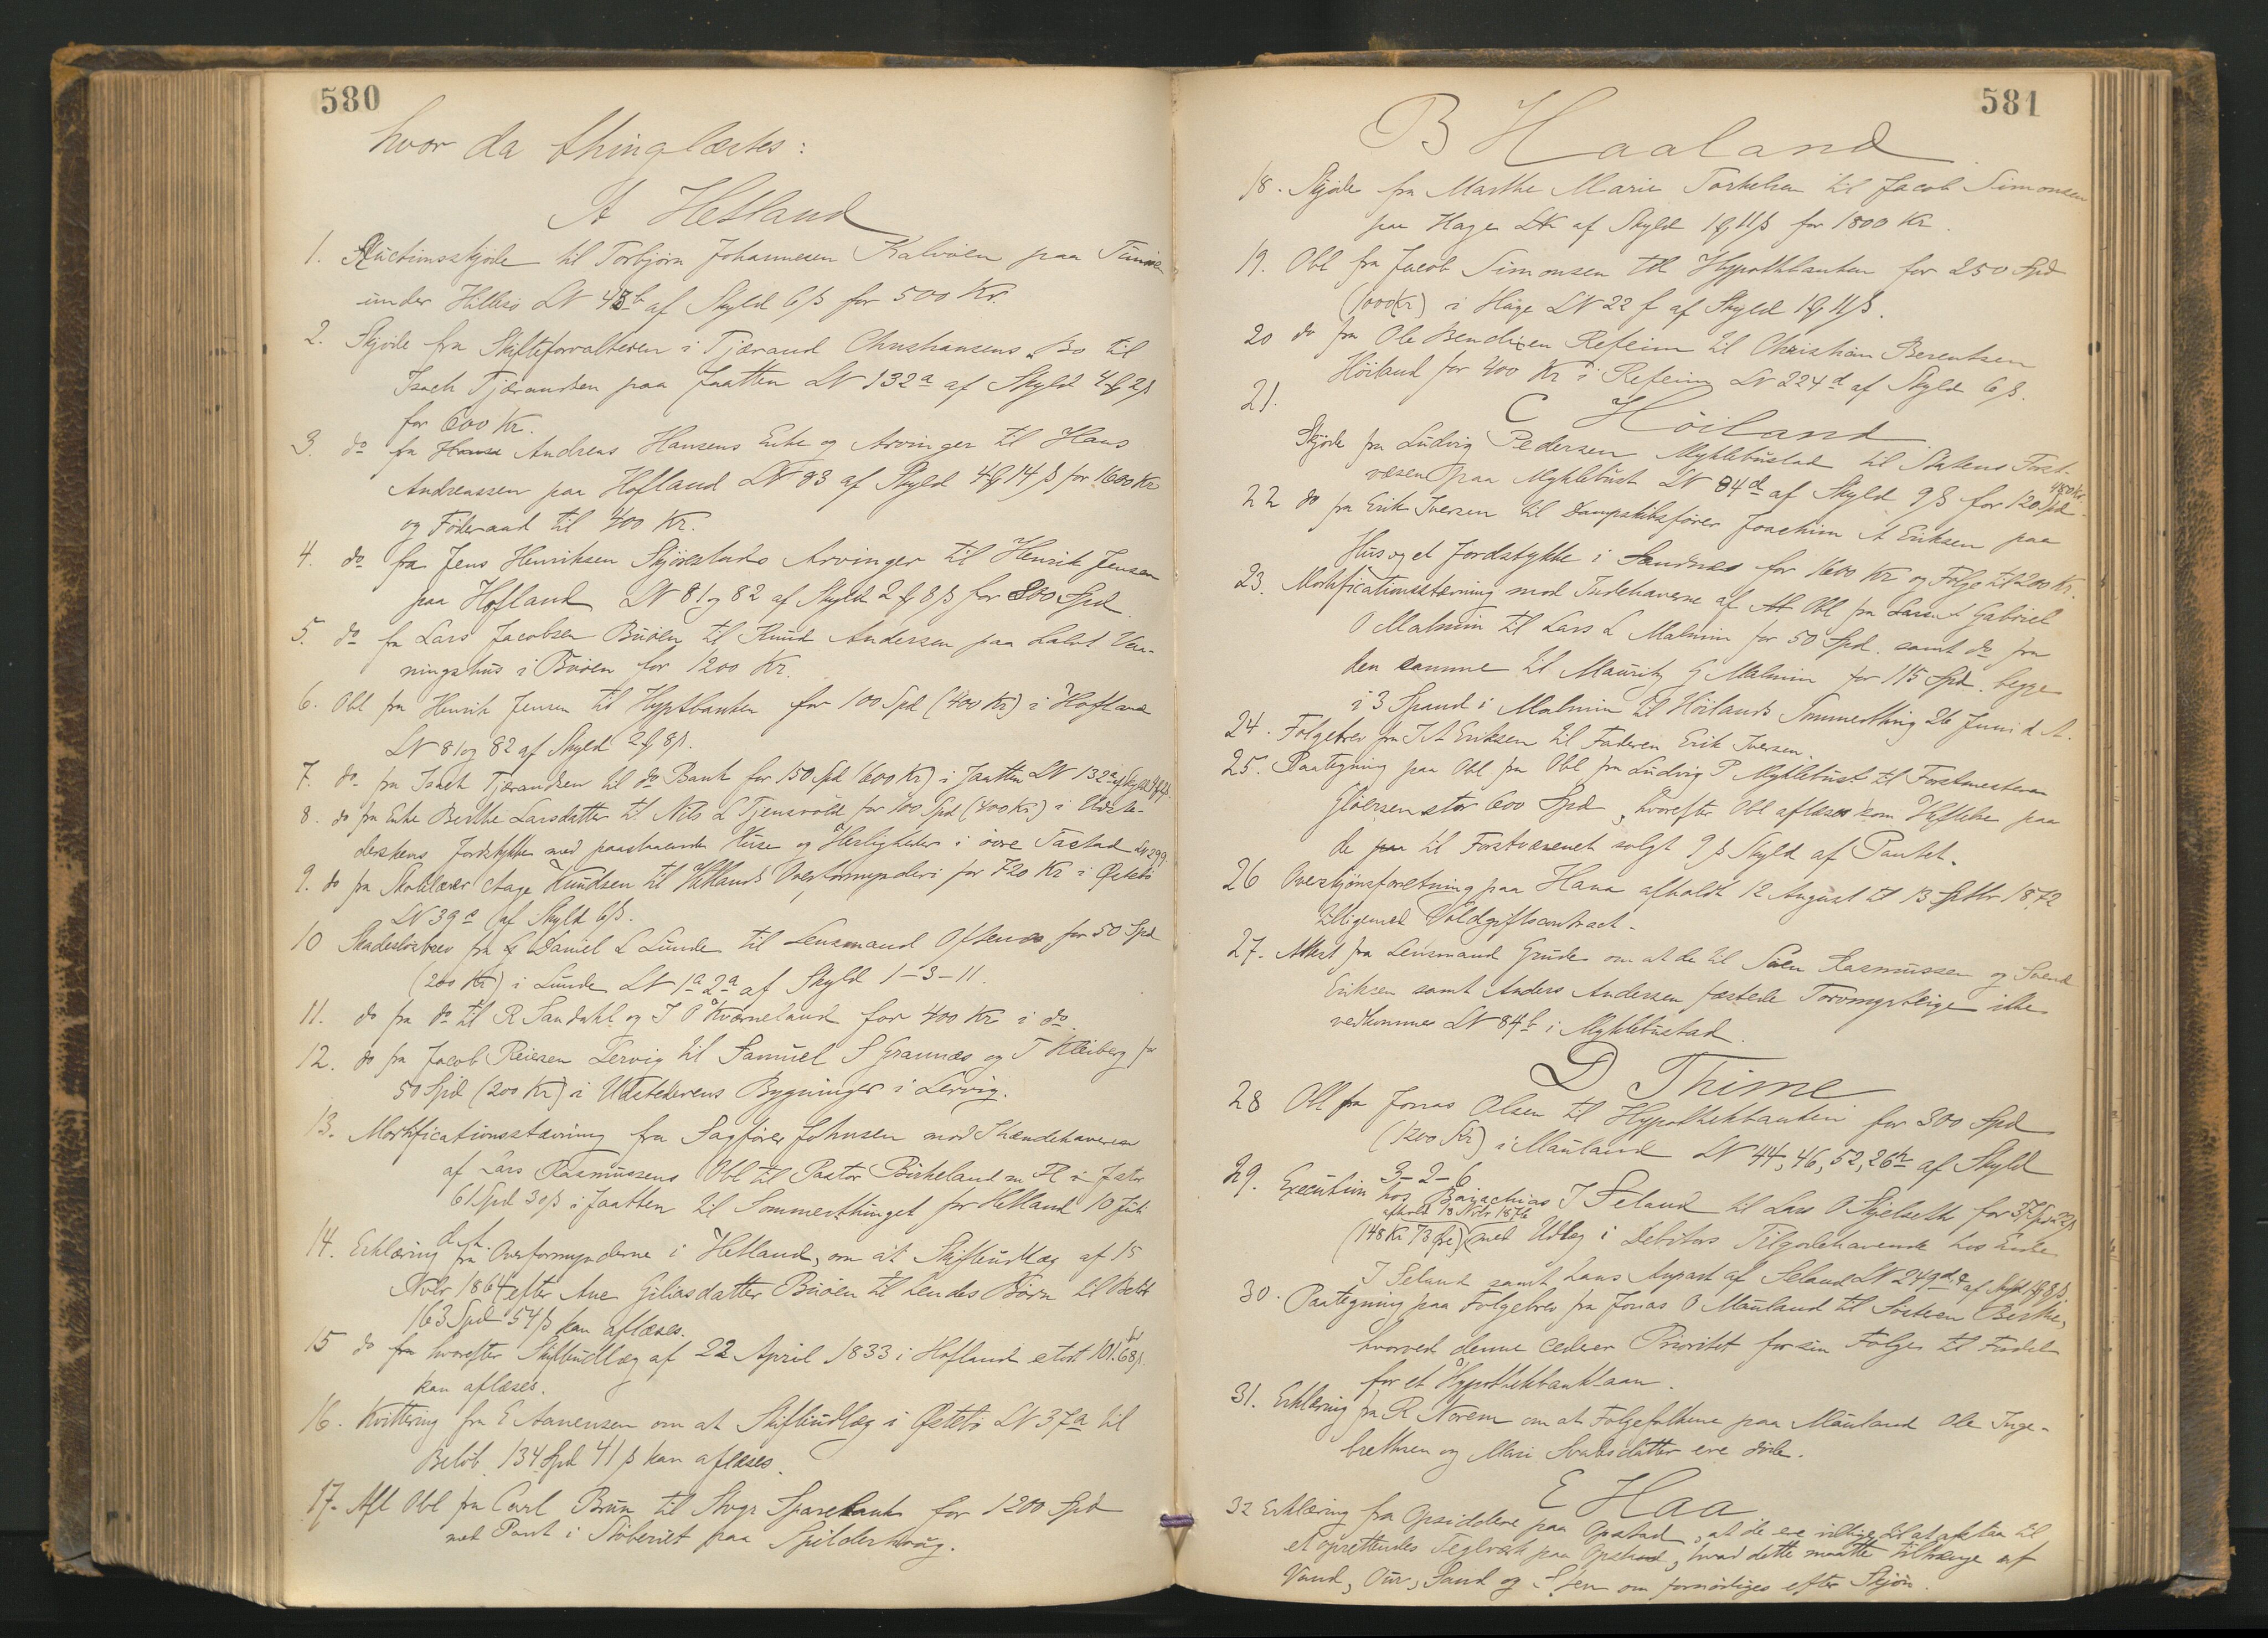 580
hvor da thinglæstes:
A Hetland
1. Auctionsskjøde til Torbjørn Johannesen Kalvøen paa
under Hillesø LN 43b af Skyld 6 ß for 500 Kr.
2. Skjøde fra Skifteforvalteren i Tjærand Christiansens Bo til
Isach Tjærandsen paa Jaatten LN 132a af Skyld 2 ß
for 600 Kr.
3. do fra Andreas Hansens Enke og Arvinger til Hans
Andreassen paa Hofland LN 83 af Skyld 14 ß for 1600 Kr
og Føderaad til 400 Kr.
4. do fra Jens Henriksen Skjørestads Arvinger til Henrik Jensen
paa Hofland LN 81 og 82 af Skyld 8 ß for 800 Spd
5. do fra Lars Jacobsen Buøen til Knud Andersen paa halvt Vaa-
ningshus i Buøen for 1200 Kr.
6. Obl fra Henrik Jensen til Hypthbanken for 100 Spd (400 Kr) i Hofland
LN 81 og 82 af Skyld 8 ß.
7. do fra Isach Tjærandsen til do Bank for 150 Spd (600 Kr) i Jaatten LN 132a af Skyld
8. do fra Enke Berthe Larsdatter til Nils L Tjensvold for 100 Spd (400 Kr) i Udste-
derskens Jordstykke med paastaaende Huse og Herligheder i øvre Tastad LN 299
9. do fra Skolelærer Aage Knudsen til Hetlands Overformynderi for 720 Kr i Østebø
LN 39a af Skyld 6 ß.
10 Skadesløsbrev fra Daniel L Lunde til Lensmand Oftenæs for 50 Spd
(200 Kr) i Lunde LN 1a 2a af Skyld 1-3-11.
11. do fra do til R Sandahl og J O Kværneland for 400 Kr i do.
12. do fra Jacob Reiesen Lervig til Samuel S Grannæs og T Kleiberg for
50 Spd (200 Kr) i Udstederens Bygninger i Lervig.
13. Mortificationsstævning fra Sagfører Johnsen mod Ihændehaveren
af Lars Rasmussens Obl til Pastor Birkeland m Fl
61 Spd 30 ß i Jaatten til Sommerthinget for Hetland 10 Juli
d. A.
14. Erklæring fra Overformynderne i Hetland, om at Skifteudlæg af 15
Novbr 1864 efter Ane Giliasdatter Buøen til hendes Børn til Beløb
163 Spd 54 ß kan aflæses.
15 do fra hvorefter Skifteudlæg af 22 April 1833 i Hofland stort 101. 68 ß.
kan aflæses.
16. Kvittering fra E Aanensen om at Skifteudlæg i Østebø LN 37a til
Beløb 134 Spd 41 ß kan aflæses.
17. Afl Obl fra Carl Brun til Stvgr Sparebank for 1200 Spd
med Pant i Støberiet paa Spilderhaug.
581
B Haaland
18. Skjøde fra Marthe Marie Torkelsen til Jacob Simonsen
paa Hage LN af Skyld 11 ß for 1800 Kr.
19. Obl fra Jacob Simonsen til Hypothbanken for 250 Spd
(1000 Kr) i Hage LN 22 f af Skyld 11 ß.
20 do fra Ole Bendixen Refheim til Christian Berentsen
Höiland for 400 Kr i Refheim LN 224d af Skyld 6 ß.
C Höiland
21.
Skjøde fra Ludvig Pedersen Myklebustad til Statens Forst-
væsen paa Myklebust LN 84d af Skyld 9 ß for 120 Spd 480 Kr.
22 do fra Erik Iversen til Dampskibsfører Joachim A Eriksen paa
Hus og et Jordstykke i Sandnæs for 1600 Kr og Følge til 1200 Kr.
23. Mortificationsstævning mod Indehaverne af Obl fra Gabriel
O Malmim til Lars L Malmim for 50 Spd. samt do fra
den samme til Mauritz G Malmim for 115 Spd. begge
i 3 Spand i Malmim til Höilands Sommerthing 26 Juni d. A.
24. Følgebrev fra J A Eriksen til Faderen Erik Iversen.
25. Paategning paa Obl fra Obl fra Ludvig P Myklebust til Forstmesteren
Gløersen stor 600 Spd, hvorefter Obl aflæses som Hæftelse paa
de til Forstvæsenet solgt 9 ß Skyld af Pantet.
26 Overskjønsforretning paa Hana afholdt 12 August til 13 Septbr 1872
tilligemed Voldgiftscontract.
27. Attest fra Lensmand Grude om at de til Søren Rasmussen og Svend
Eriksen samt Anders Andersen fæstede Torvmyrteige ikke
vedkommer LN 84b i Myklebustad.
D Thime
28 Obl fra Jonas Olsen til Hypothekbanken for 300 Spd
(1200 Kr) i Mauland LN 44, 46, 52, 26 af Skyld
3-2-6
29. Execution hos Barachias J Seland til Lars O Skjelseth for 37 Spd 22 ß
afholdt 13 Novbr 1876
(148 Kr 73 Øre) med Udlæg i Debitors Tilgodehavende hos Enke
J Seland samt hans Anpart af Seland LN 249 af Skyld 8 ß.
30. Paategning paa Følgebrev fra Jonas O Mauland til Søsteren Berthe,
hvorved denne cederer Prioritet for sin Følge til Fordel
for et Hypothekbanklaan.
31. Erklæring fra R Norem om at Følgefolkene paa Mauland Ole Inge-
brethsen og Mari Svalesdatter ere døde.
E Haa
32 Erklæring fra Opsidderne paa Opstad, at de ere villige til at afstaa til
et oprettendes Teglværk paa Opstad, hvad dette maatte tiltrænge af
Vand, Our, Sand og om fornødiges efter Skjøn.